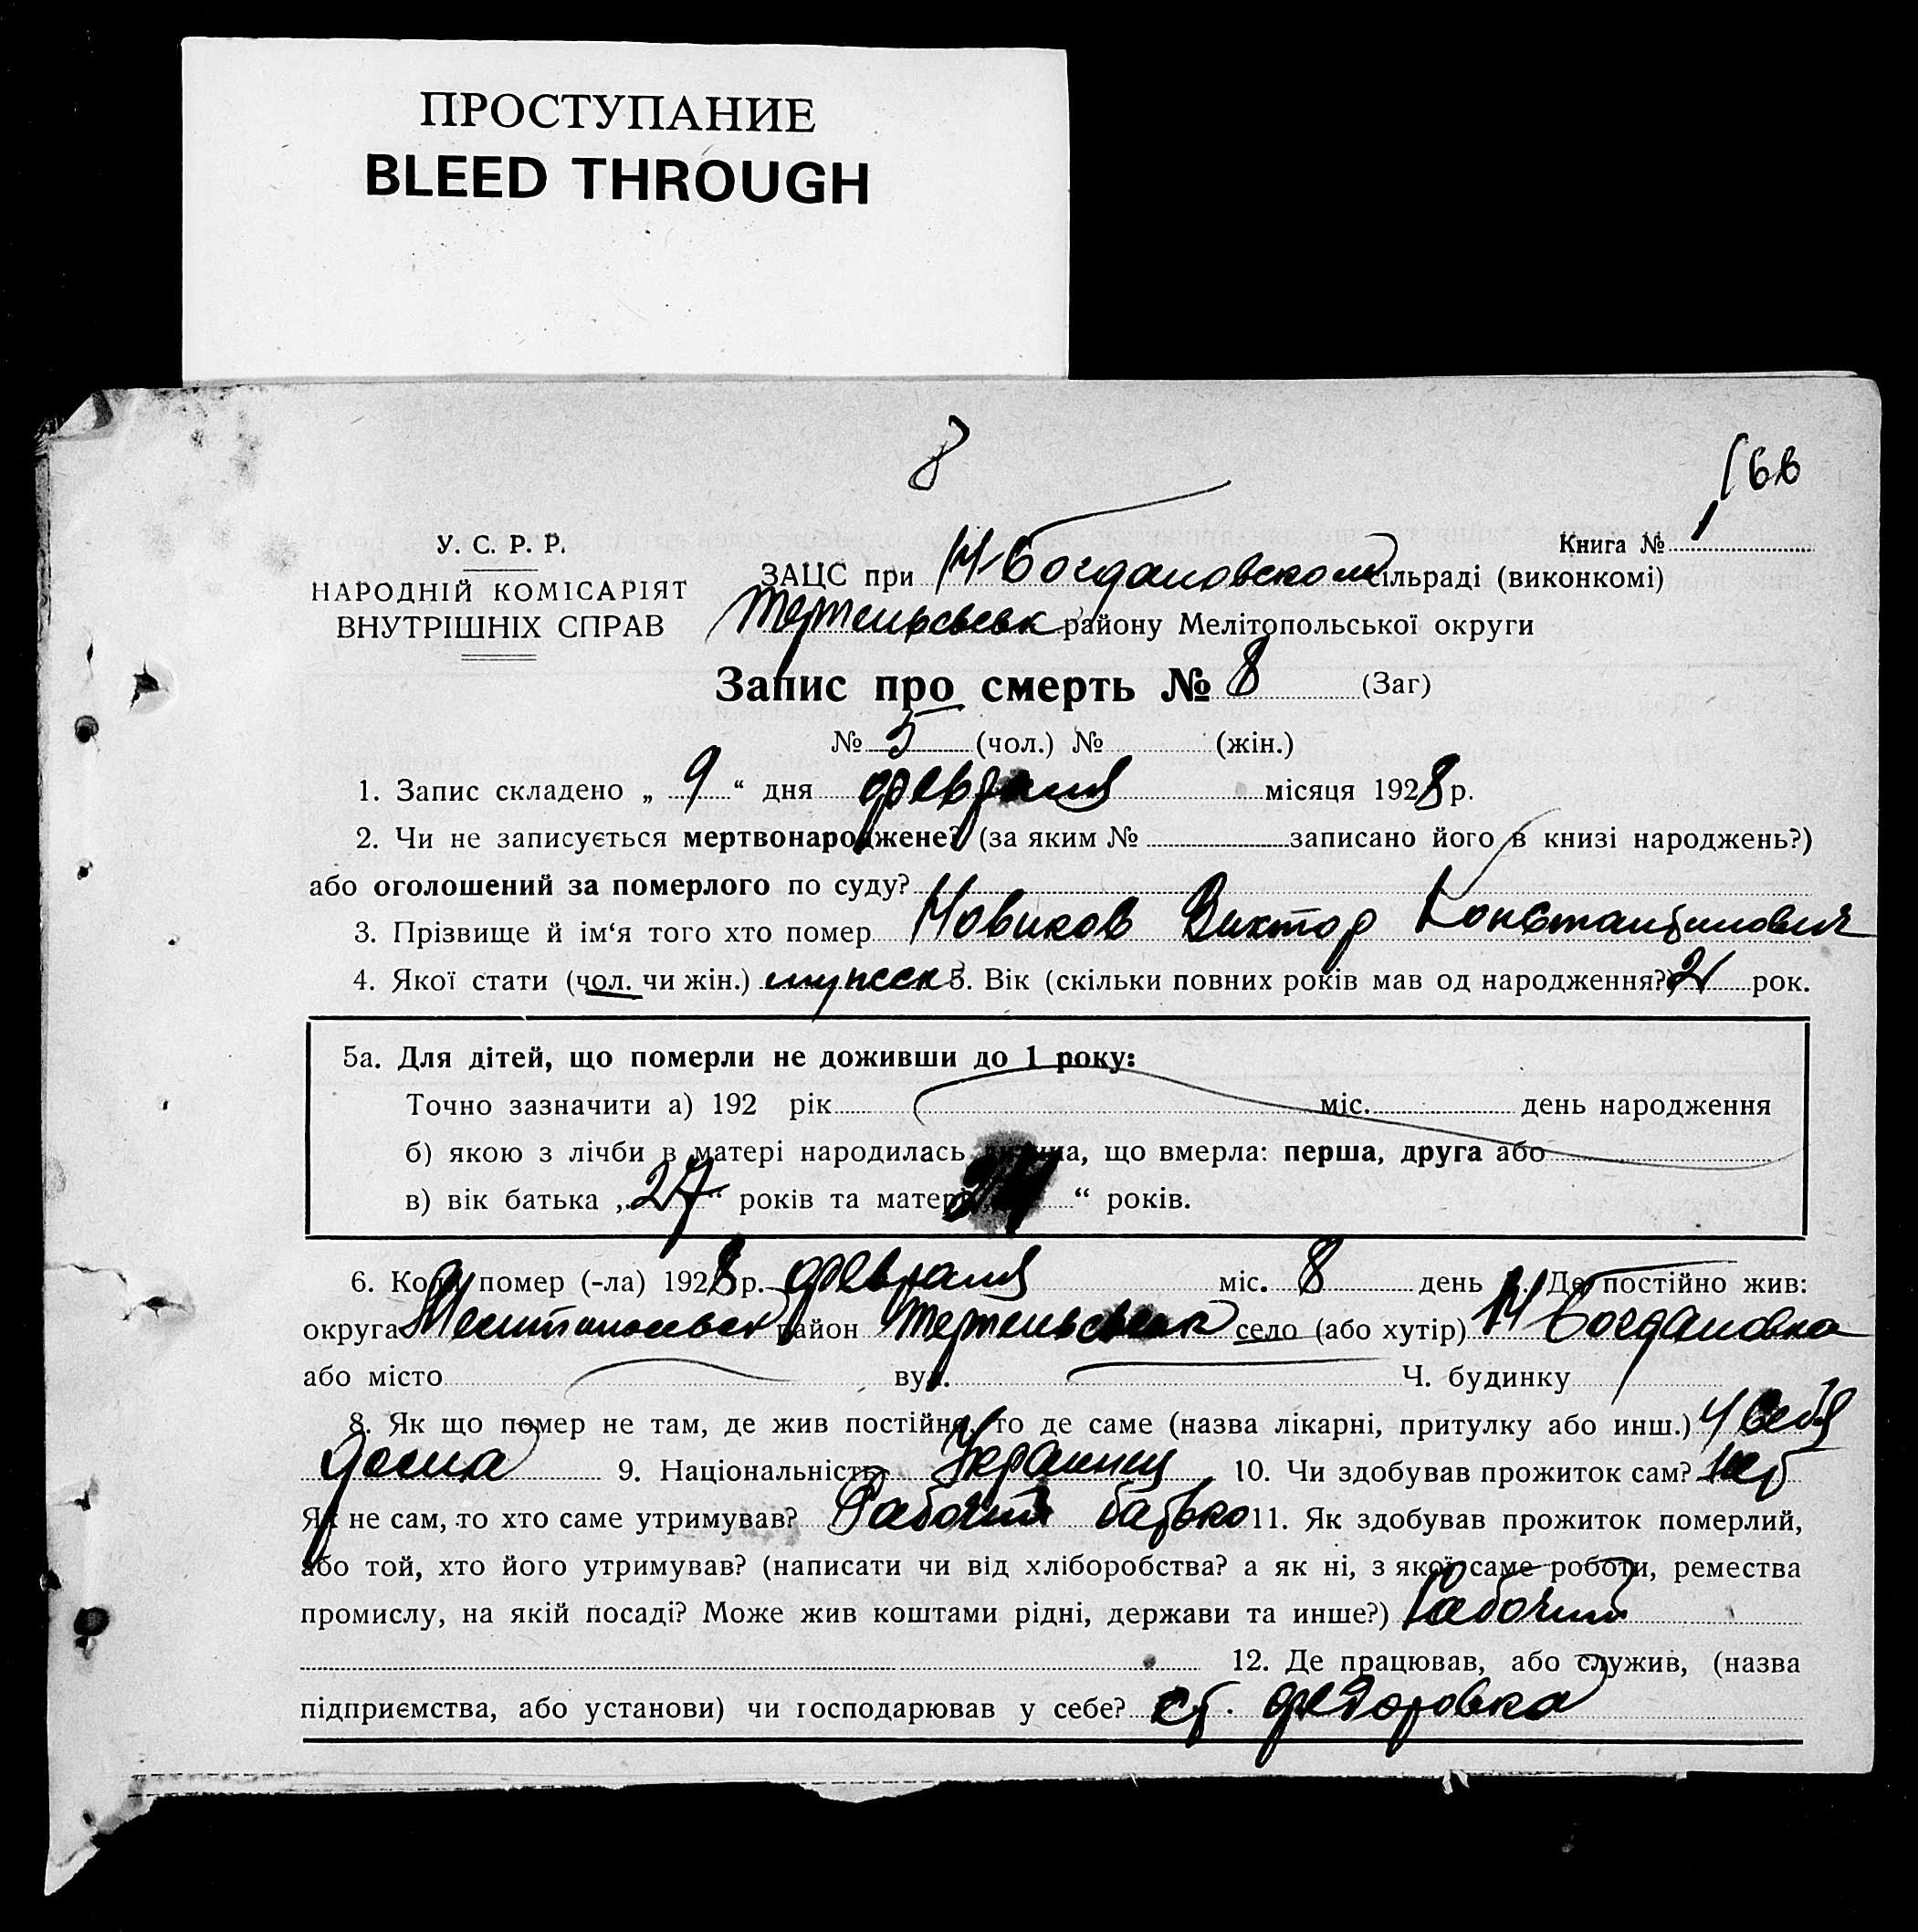 ПРОСТУПАНИЕ
BLEED THROUGH
8
166
У. С. Р. Р.
Книга № 1
НАРОДНІЙ КОМІСАРІЯТ
ЗАЦС при Н-Богдановском сільраді (виконкомі)
ВНУТРІШНІХ СПРАВ
району Мелітопольської округи
Запис про смерть № 8 (Заг)
№ 5 (чол.) № (жін.)
1. Запис складено „ 9 “ дня февраля місяця 1928 р.
2. Чи не записується мертвонароджене? (за яким № записано його в книзі народжень?)
або оголошений за померлого по суду?
3. Прізвище й ім‘я того хто помер Новиков Виктор Константинович
4. Якої стати (чол. чи жін.) мужеск 5. Вік (скільки повних років мав од народження?) 2 рок.
5а. Для дітей, що померли не доживши до 1 року:
Точно зазначити а) 192 рік міс. день народження
б) якою з лічби в матері народилась дитина, що вмерла: перша, друга або
в) вік батька „ 27 “ років та матері “ років.
6. Коли помер (-ла) 1928 р. февраля міс. 8 день 7. Де постійно жив:
округа Мелитопольск район село (або хутір) Н Богдановка
або місто вул. Ч. будинку
8. Як що помер не там, де жив постійно, то де саме (назва лікарні, притулку або инш.) у себя
дома 9. Національність Украинец 10. Чи здобував прожиток сам? нет
Як не сам, то хто саме утримував? Рабочий батько 11. Як здобував прожиток померлий,
або той, хто його утримував? (написати чи від хліборобства? а як ні, з якої саме роботи, ремества
промислу, на якій посаді? Може жив коштами рідні, держави та инше?) Рабочий
12. Де працював, або служив, (назва
підприємства, або установи) чи господарював у себе? ст. Федоровка